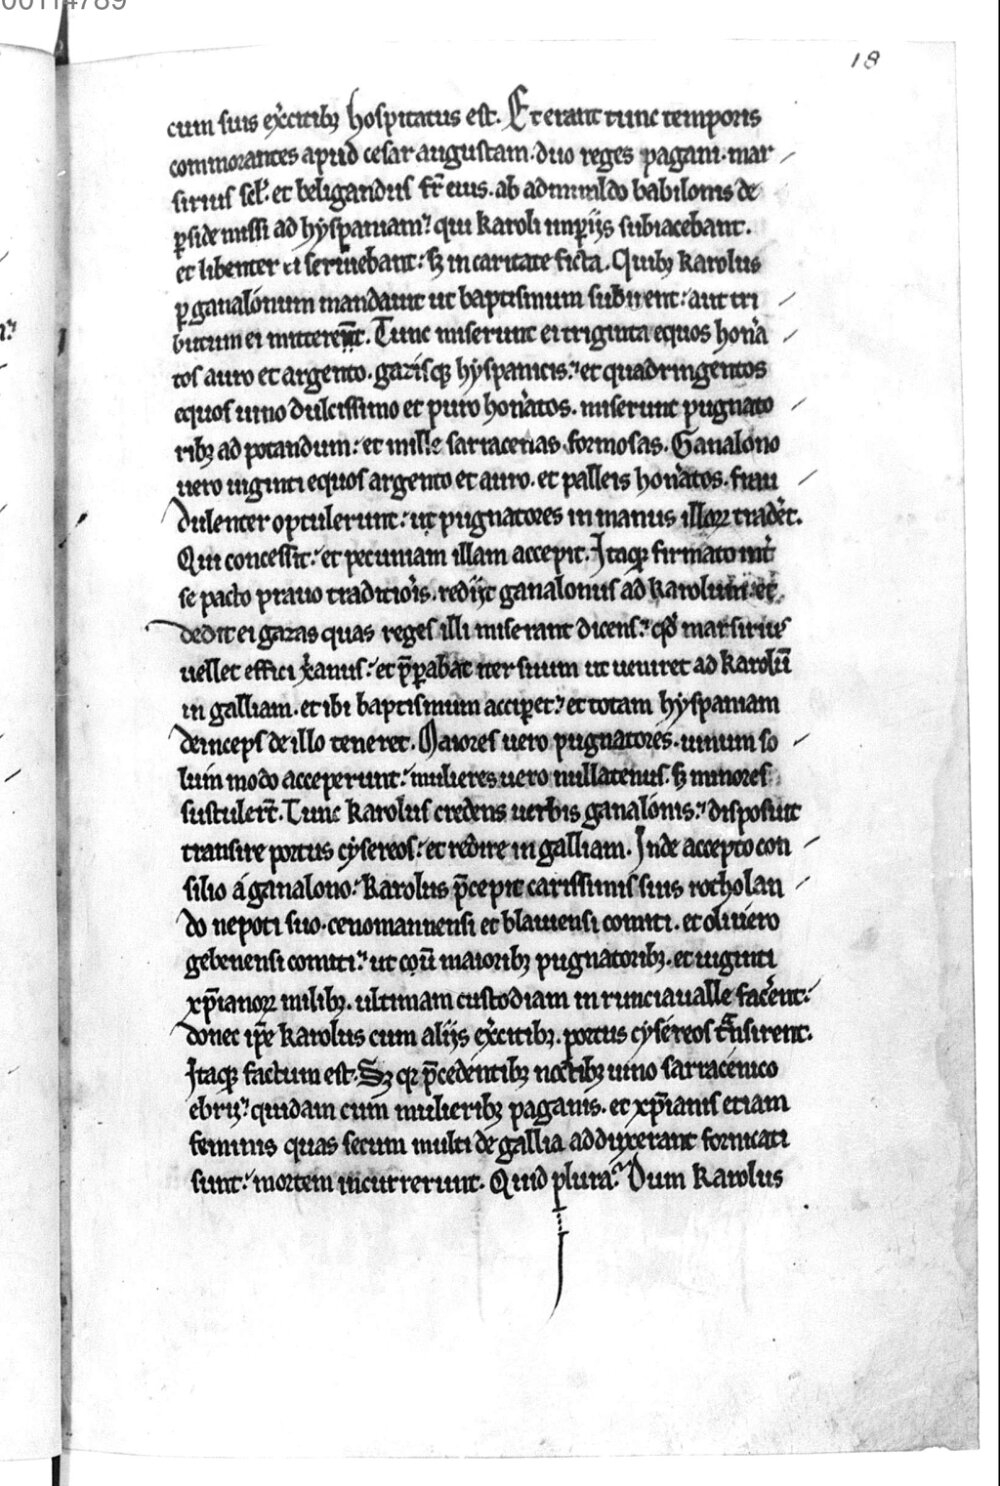 00114789
18
cum suis ex̾citibꝫ hospitatus est. Et erant tunc temporis
commorantes apud cesar augustam. duo reges pagani. mar
sirius scł. et beligandus fr̄ eius. ab admiraldo babilonis de
ꝑside missi ad hyspaniam? qui karoli imꝑiis subiacebant.
et libenter ei seruiebant: sꝫ in caritate ficta. Quibꝫ karolus
ꝑ ganalonum mandauit ut baptismum subirent: aut tri
butum ei mitterent. Tunc miserunt ei triginta equos hon̾a
tos auro et argento. gazisqꝫ hyspanicis: et quadringentos
equos uino dulcissimo et puro hon̾atos. miserunt pugnato
ribꝫ ad potandum: et mille sarracenas formosas. Ganalono
uero uiginti equos argento et auro. et palleis hon̾atos. frau
dulenter optulerunt: ut pugnatores in manus illoꝝ trad̾et.
Qui concessit: et pecuniam illam accepit. Itaqꝫ firmato int̾
se pacto prauo traditiōis. rediit ganalonus ad karolum. et
dedit ei gazas quas reges illi miserant dicens? qđ marsirius
uellet effici x̄anus: et p̄ꝑabat iter suum ut ueniret ad karolū
in galliam. et ibi baptismum acciꝑet? et totam hyspaniam
deinceps de illo teneret. Maiores uero pugnatores. uinum so
lum modo acceperunt: mulieres uero nullatenus. sꝫ minores
sustulerт̄. Tunc karolus credens uerbis ganalonis? disposuit
transire portus cysereos: et redire in galliam. Inde accepto con
silio a ganalono: karolus p̄cepit carissimis suis rotholan
do nepoti suo. cenomannensi et blauiensi comiti. et oliuero
gebenensi comiti? ut cou̅ maioribꝫ pugnatoribꝫ. et uiginti
xp̄ianoꝝ milibꝫ. ultimam custodiam in runciaualle fac̾ent:
donec ip̄e karolus cum aliis ex̾citibꝫ. portus cysereos tᷓnsirent.
Itaqꝫ factum est. Sꝫ qꝛ p̄cedentibꝫ noctibꝫ uino sarracenico
ebrii? quidam cum mulieribꝫ paganis. et xp̄ianis etiam
feminis quas secum multi de gallia adduxerant fornicati
sunt: mortem incurrerunt. Quid plura? Dum karolus